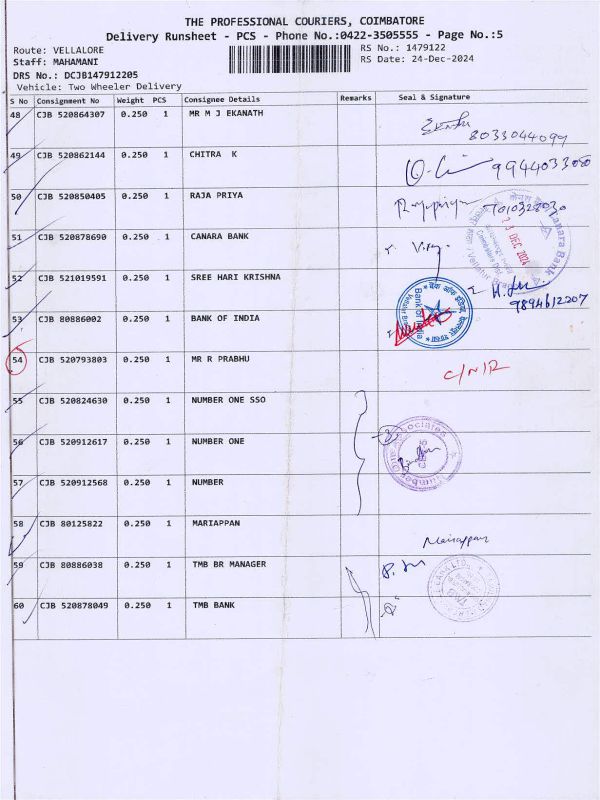 THE PROFESSIONAL COURIERS, COIMBATORE
Delivery Runsheet - PCS - Phone No.:0422-3505555 - Page No.:5
Route: VELLALORE
RS No.: 1479122
Staff: MAHAMANI
RS Date: 24-Dec-2024
DRS No.: DCJB147912205
Vehicle: Two Wheeler Delivery
S No Consignment No Weight PCS Consignee Details Remarks Seal & Signature
48 CJB 520864307 0.250 1 MR M J EKANATH
8033044099
49 CJB 520862144 0.250 1 CHITRA K
50 CJB 520850405 0.250 1 RAJA PRIYA
51 CJB 520878690 0.250 1 CANARA BANK
Canara Bank
DEC 2024
52 CJB 521019591 0.250 1 SREE HARI KRISHNA
9894612207
53 CJB 80886002 0.250 1 BANK OF INDIA
Bank of India
54 CJB 520793803 0.250 1 MR R PRABHU C/N/R
55 CJB 520824630 0.250 1 NUMBER ONE SSO
56 CJB 520912617 0.250 1 NUMBER ONE
Number One Associates
57 CJB 520912568 0.250 1 NUMBER
58 CJB 80125822 0.250 1 MARIAPPAN Mariappan
59 CJB 80886038 0.250 1 TMB BR MANAGER
60 CJB 520878049 0.250 1 TMB BANK